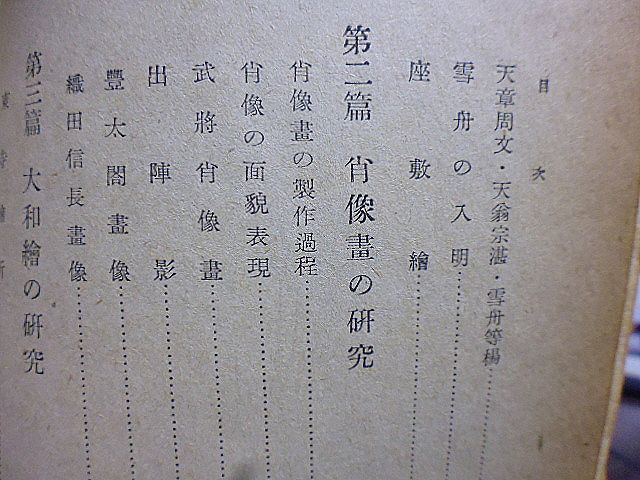 目次
天章周文・天翁宗湛・雪舟等楊
雪舟の入明
座敷繪
第二篇 肖像畫の研究
肖像畫の製作過程
肖像の面貌表現
武將肖像畫
出陣影
豐太閤畫像
織田信長畫像
第三篇 大和繪の研究